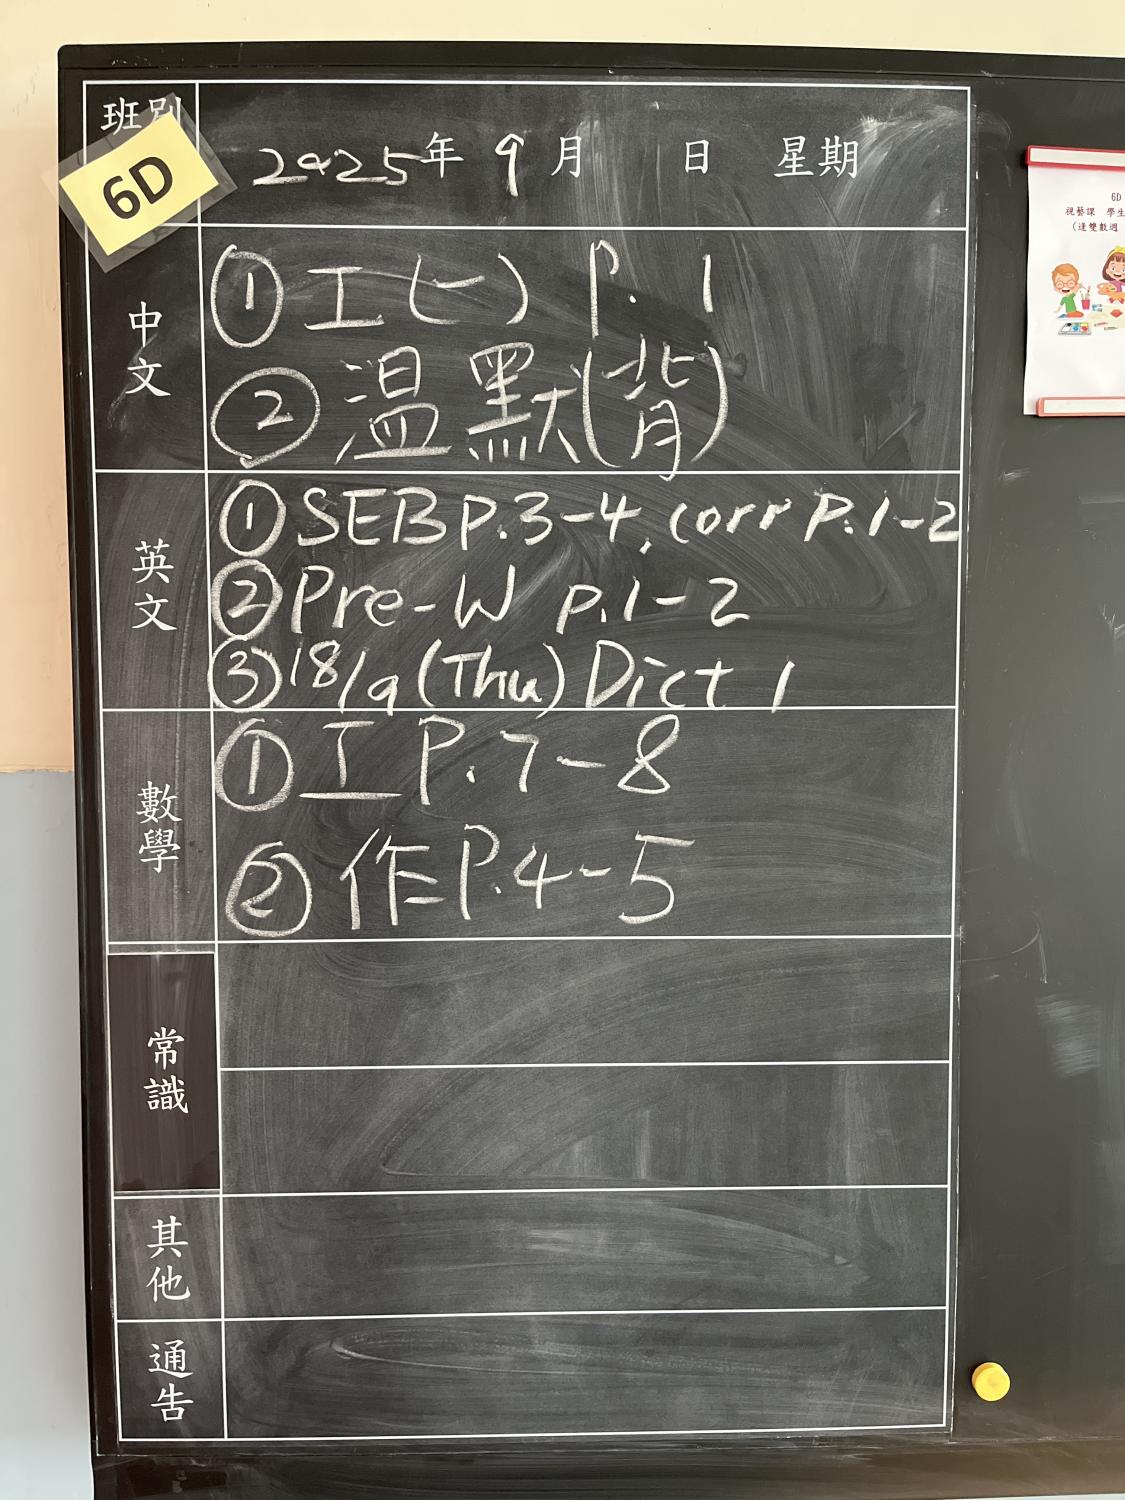 班別
6D
2025年 9月 日 星期
中文
① 工(一) P. 1
② 溫默(背)
英文
① SEB P.3-4, corr P.1-2
② Pre-W p.1-2
③ 18/9 (Thu) Dict 1
數學
① 工 P.7-8
② 作 P.4-5
常識
其他
通告
6D
視藝課 學生
(逢雙數週